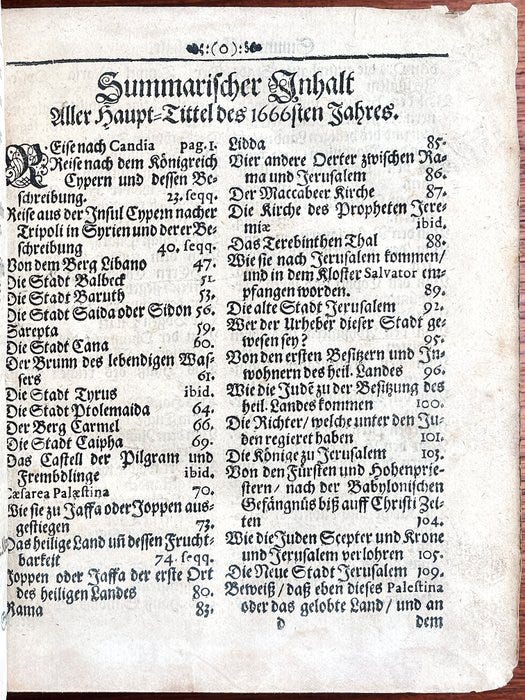 :(0):
Summarischer Inhalt
Aller Haupt-Tittel des 1666sten Jahres.
REise nach Candia pag. 1.
Reise nach dem Königreich
Cypern und dessen Be-
schreibung. 23. seqq.
Reise aus der Insul Cypern nacher
Tripoli in Syrien und derer Be-
schreibung 40. seqq.
Von dem Berg Libano 47.
Die Stadt Balbeck 51.
Die Stadt Baruth 53.
Die Stadt Saida oder Sidon 56.
Sarepta 59.
Die Stadt Cana 60.
Der Brunn des lebendigen Was-
sers 61.
Die Stadt Tyrus ibid.
Die Stadt Ptolemaida 64.
Der Berg Carmel 66.
Die Stadt Caipha 69.
Das Castell der Pilgram und
Frembdlinge ibid.
Cæsarea Palæstina 70.
Wie sie zu Jaffa oder Joppen aus-
gestiegen 73.
Das heilige Land uñ dessen Frucht-
barkeit 74. seqq.
Joppen oder Jaffa der erste Ort
des heiligen Landes 80.
Rama 83.
Lidda 85.
Vier andere Oerter zwischen Ra-
ma und Jerusalem 86.
Der Maccabeer Kirche 87.
Die Kirche des Propheten Jere-
miæ ibid.
Das Terebinthen Thal 88.
Wie sie nach Jerusalem kommen/
und in dem Kloster Salvator em-
pfangen worden. 89.
Die alte Stadt Jerusalem 92.
Wer der Urheber dieser Stadt ge-
wesen sey? 95.
Von den ersten Besitzern und In-
wohnern des heil. Landes 96.
Wie die Judẽ zu der Besitzung des
heil. Landes kommen 100.
Die Richter/ welche unter den Ju-
den regieret haben 101.
Die Könige zu Jerusalem 103.
Von den Fürsten und Hohenprie-
stern/ nach der Babylonischen
Gefängnüs biß auff Christi Zei-
ten 104.
Wie die Juden Scepter und Krone
und Jerusalem verlohren 105.
Die Neue Stadt Jerusalem 109.
Beweiß/ daß eben dieses Palestina
oder das gelobte Land/ und an
d dem